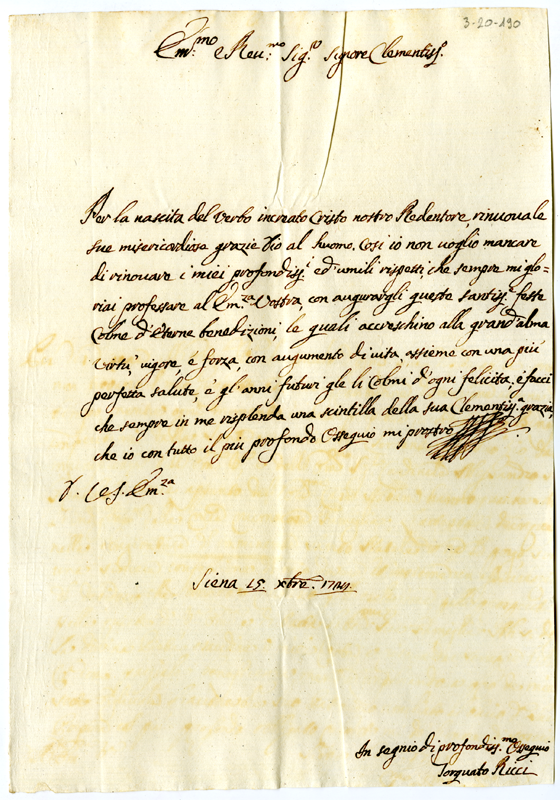 3-20-190
Em.mo e Reu.mo Sig.re Signore Clementiss.o
Per la nascita del Verbo increato Cristo nostro Redentore, rinuoua le
sue misericordiose grazie Dio al huomo. Cosi io non uoglio mancare
di rinouare i miei profondiss.i ed'umili rispetti che sempre mi glo=
riai professare al Em.za Vostra con augurargli queste santiss.e feste
Colme d'eterne benedizioni, le quali accreschino alla grand'alma
Virtù, uigore, e forza con augumento di uita, assieme con una più
perfetta salute, e gl'anni futuri gle li Colmi d'ogni felicita, e facci
che sempre in me risplenda una scintilla della sua Clementiss.a grazia,
che io con tutto il più profondo Ossequio mi prostro
Em.za
Siena 15. xbre. 1744.
In segnio di profondiss.mo Ossequio
Torquato Ricci